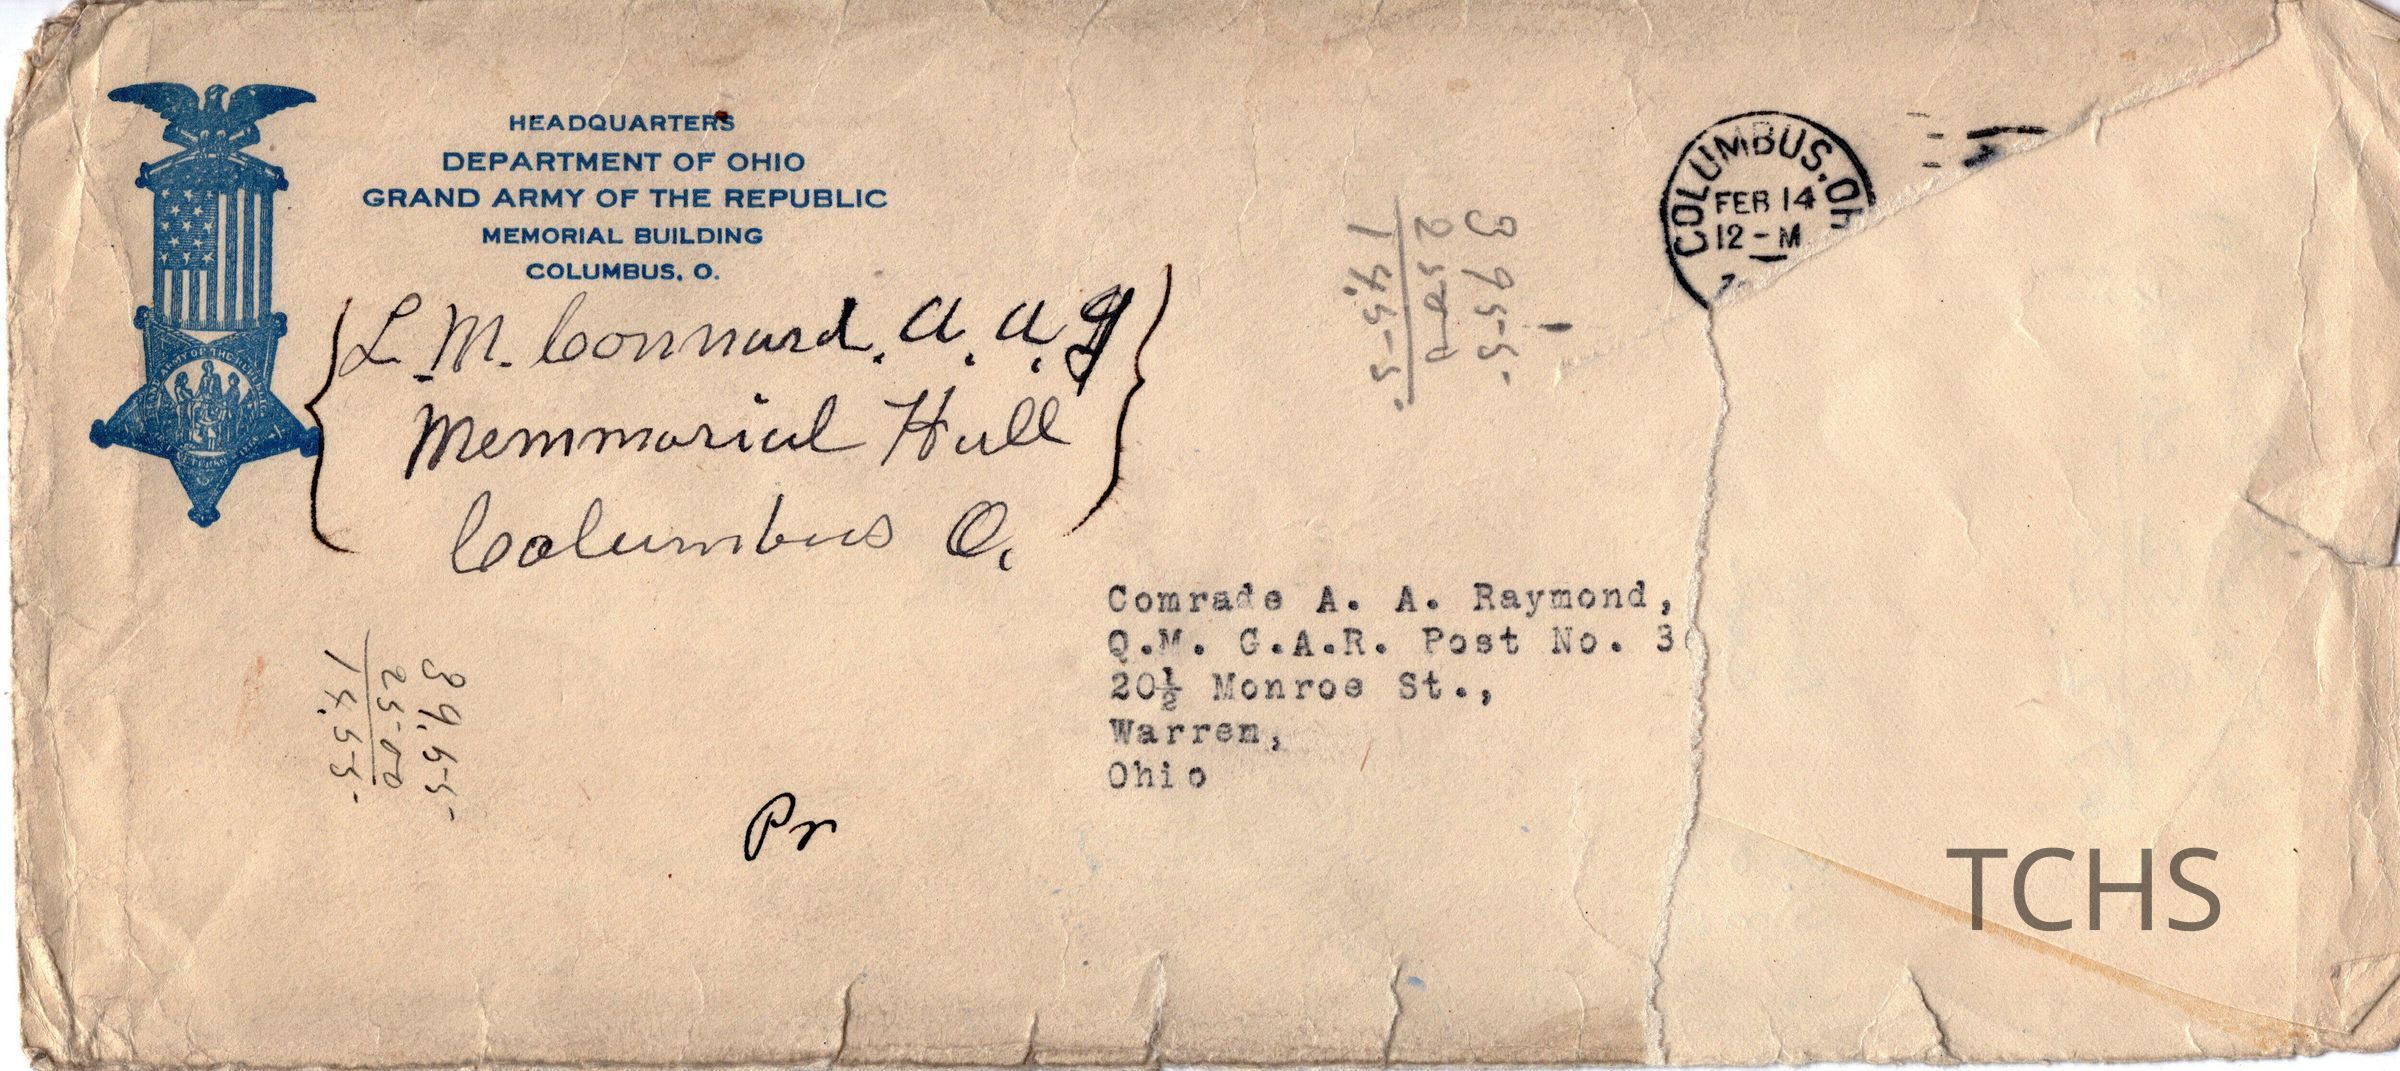 HEADQUARTERS
DEPARTMENT OF OHIO
GRAND ARMY OF THE REPUBLIC
MEMORIAL BUILDING
COLUMBUS, O.
L. M. Connard. a. a. g
Memmorial Hall
Columbus O.
COLUMBUS, OH
FEB 14
12 - M
39 55
25 00
14.55
Comrade A. A. Raymond,
Q.M. G.A.R. Post No. 3
20½ Monroe St.,
Warren,
Ohio
39.55
25 00
14.55
Pr
GRAND ARMY OF THE REPUBLIC
VETERAN
TCHS